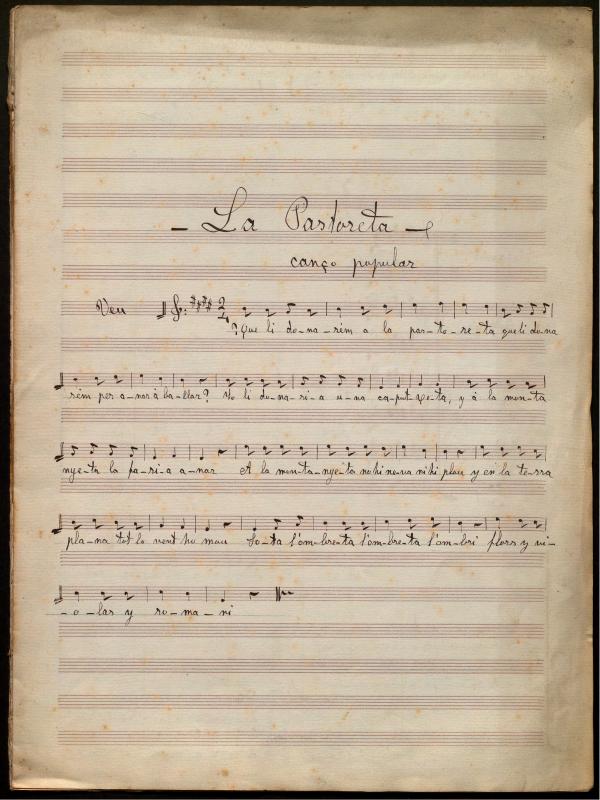 - La Pastoreta -
canço popular
Veu
?Que li do-na-rém a la pas-to-re-ta que li do-na
rém per a-nar á ba-llar? Jo li do-na-ri-a u-na ca-put-xe-ta, y á la mon-ta
nye-ta la fa-ri-a a-nar A la mon-ta-nye-ta no hi neva ni hi plou y en la te-rra
pla-na tot lo vent ho mou So-ta l'om-bre-ta l'om-bre-ta l'om-bri flors y vi-
-o-las y ro-ma-ni